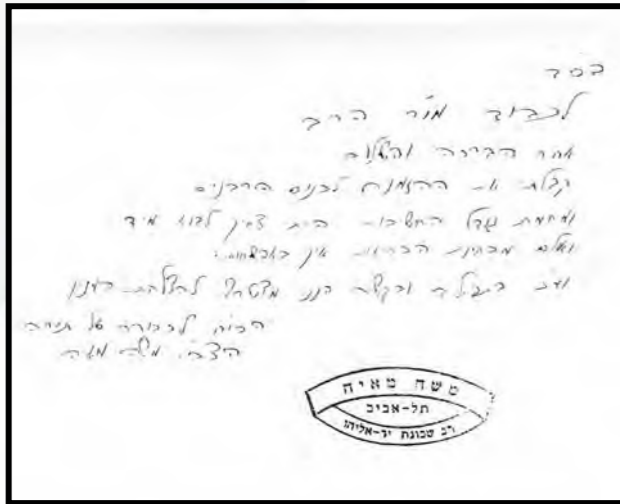 בסד
לכבוד מו"ר הרב
אחר הברכה והשלום
קבלתי את ההזמנה לכנס הרבנים
ומחמת גודל החשיבות הייתי צריך לבוא מיד
ואולם מבחינת הבריאות אין באפשרותי
בתפילה ובקשה הנני מצטרף להצלחת הענין
הכו"ח לכבודה של תורה
הצב"י משה מאיה
משה מאיה
תל-אביב
רב שכונת יד-אליהו